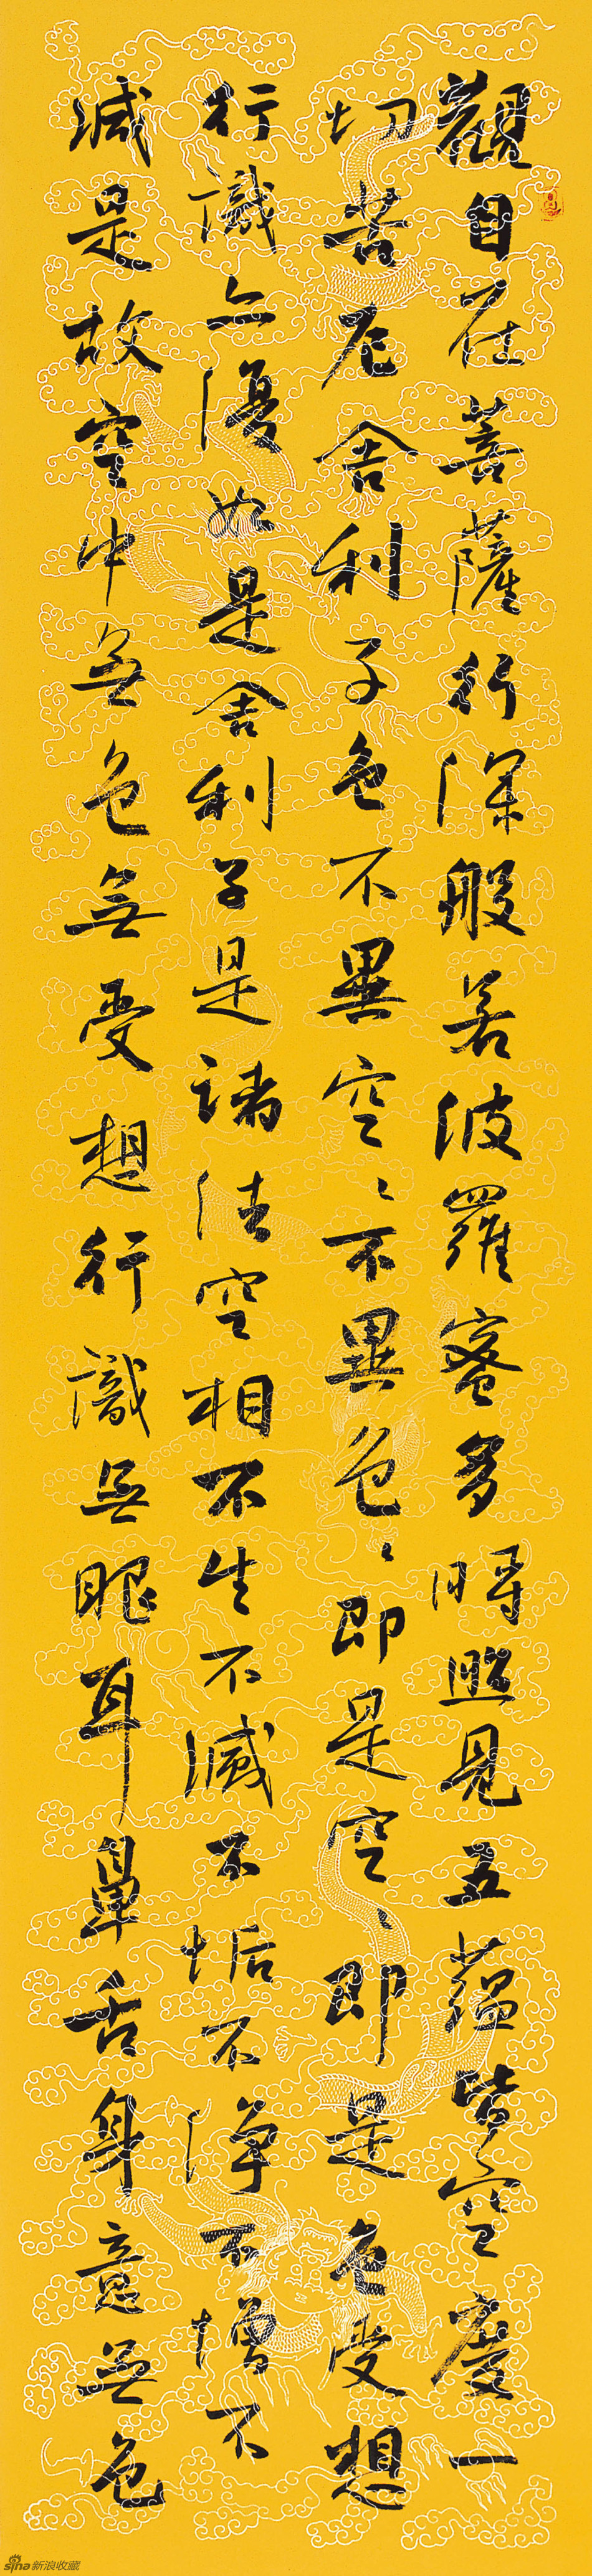 觀自在菩薩行深般若波羅蜜多時照見五蘊皆空度一
切苦厄舍利子色不異空〻不異色〻即是空〻即是色受想
行識亦復如是舍利子是諸法空相不生不滅不垢不淨不增不
減是故空中無色無受想行識無眼耳鼻舌身意無色
sina新浪收藏